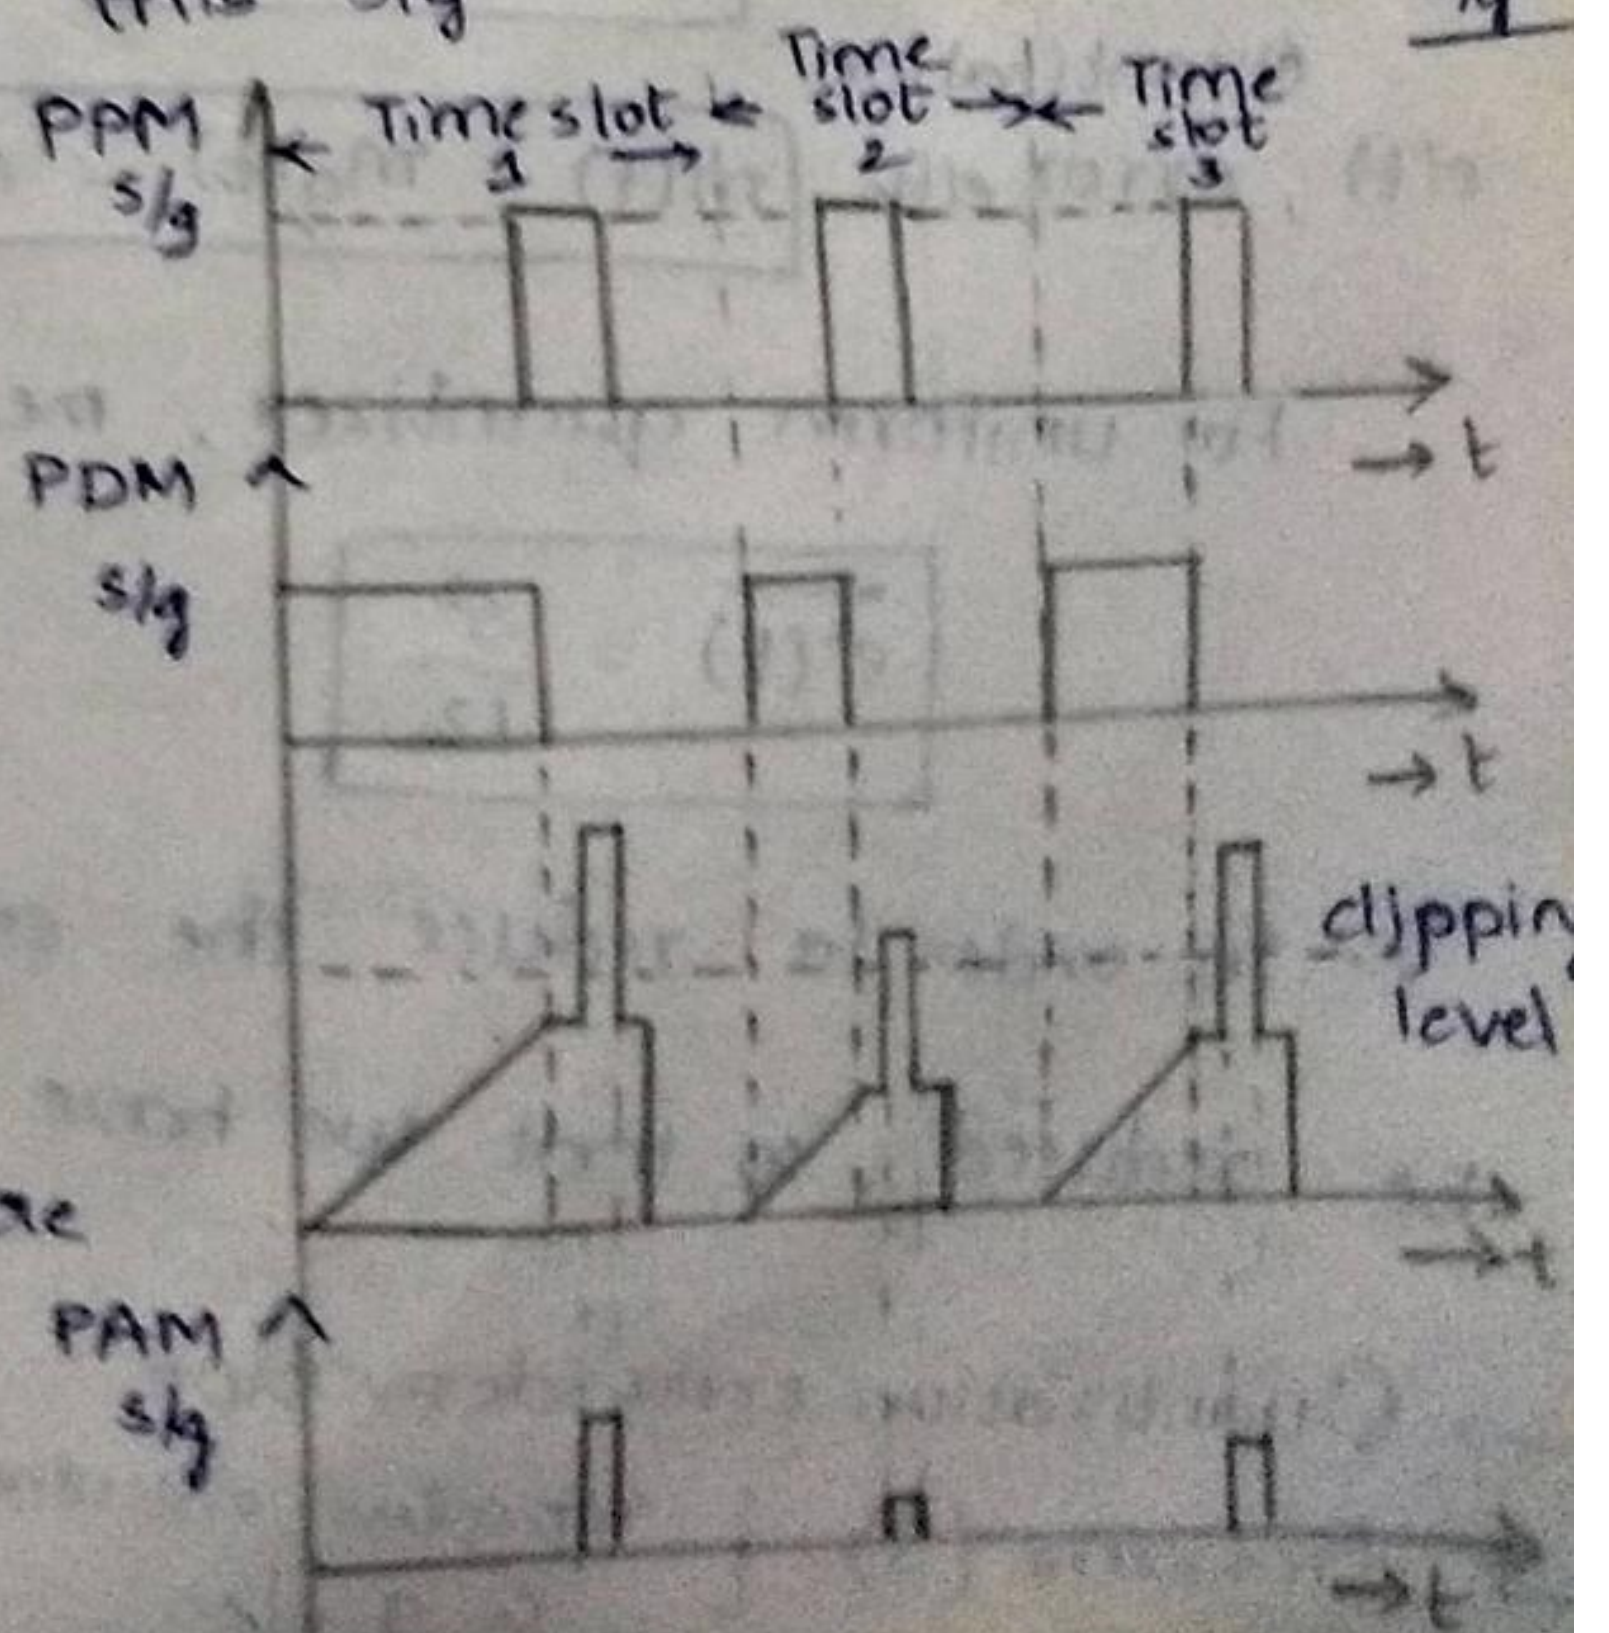 PPM
s/g
Time slot
1
Time
slot
2
Time
slot
3
→ t
PDM
s/g
→ t
clippin
level
→ t
PAM
s/g
→ t